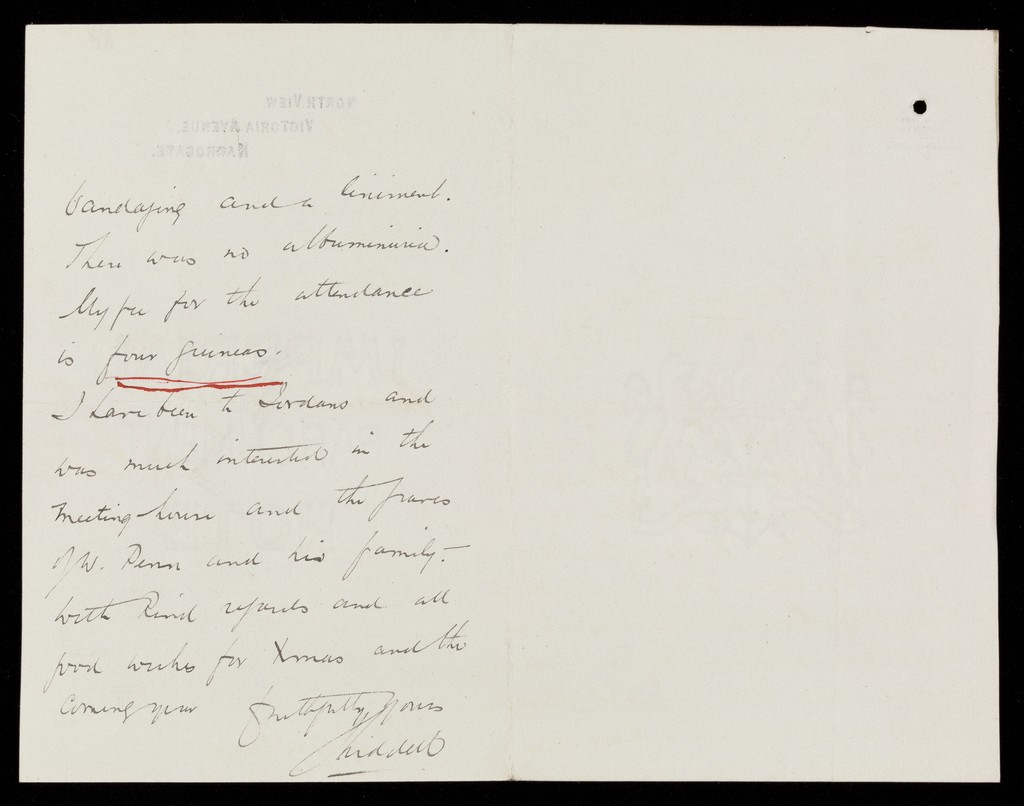 NORTH VIEW,
VICTORIA AVENUE,
HARROGATE.
bandaging and a liniment.
There was no albuminuria.
My fee for the attendance
is four guineas.
I have been to Jordans and
was much interested in the
meeting-house and the graves
of W. Penn and his family.
With kind regards and all
good wishes for Xmas and the
coming year faithfully yours
Liddell